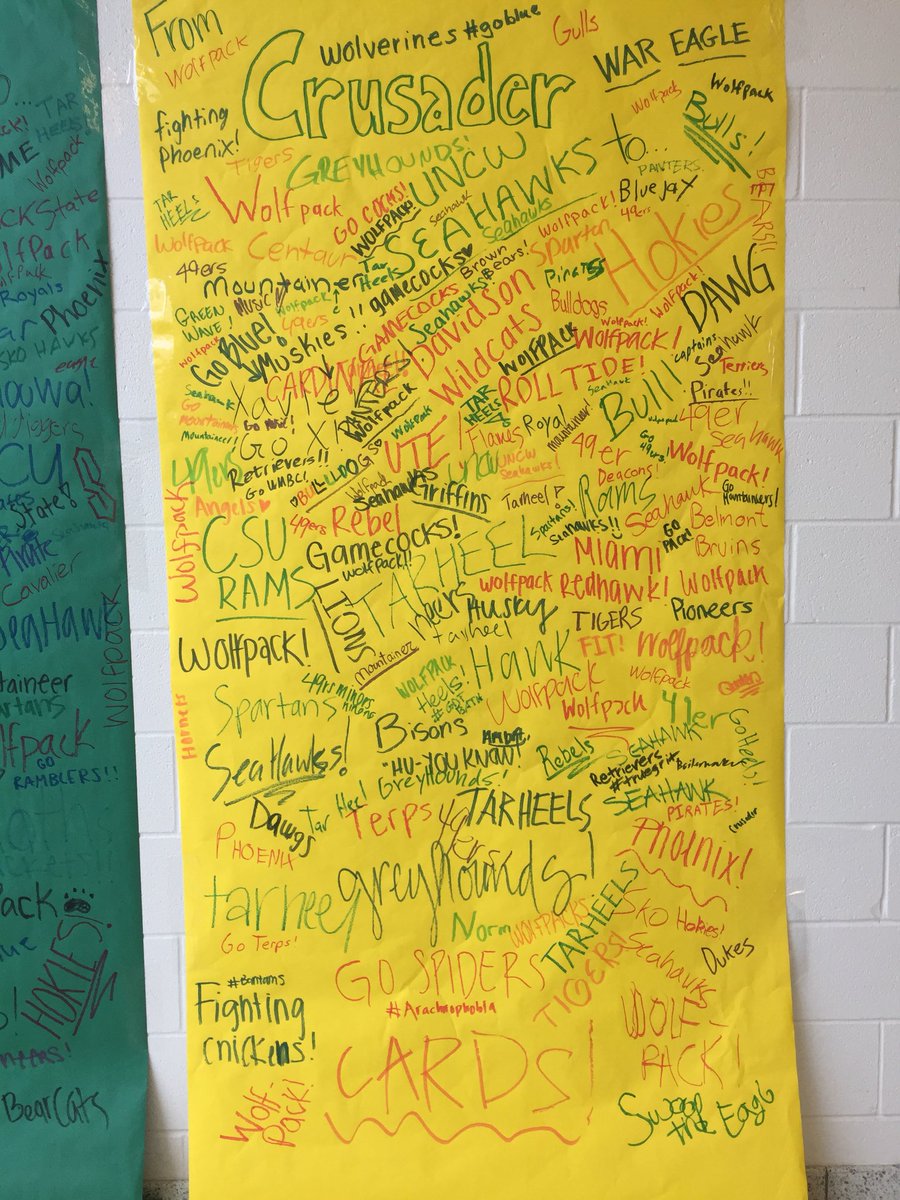 From
Wolfpack
wolverines #goblue
Gulls
WAR EAGLE
Crusader
fighting
Phoenix!
to...
Wolfpack
Wolfpack
Bulls!
Tigers
GREYHOUNDS!
UNCW
SEAHAWKS
PANTERS
BEARS!!
TAR
HEELS
Wolfpack
GO COCKS!
WOLFPACK!
Seahawk
Seahawks
Wolfpack!
49ers
Blue jax
Wolfpack
Centaur
Spartan
Hokies
49ers
Mountaineer
Tar
Heels
gamecocks
Brown
Bears!
Pirates
Bulldogs
Wolfpack!
DAWG
GREEN
WAVE!
Music
Wolfpack!
49ers
Go Blue!
Muskies
GAMECOCKS
Seahawks
Davidson
Wildcats
WOLFPACK
Wolfpack!
Wolfpack!
captains
Seahawk
Terriers
Wolfpack
CARDINALS!!
Xavier
PANTERS!
Wolfpack
Wolfpack
TAR
HEELS
ROLL TIDE!
SeaHawk
Bull!
Pirates!!
49er
Seahawk
Seahawk
GO
Mountaineers
Mountaineers!
Go Music!
Go X!
Retrievers!!
Go UMBC!
BULLDOGS
UTE!
Flames
Royal
mountaineer!
49er
GO
49ers!
Wolfpack!
UNCW
Seahawks!
Deacons!
Angels
Wolfpack
49ers
Rebel
Wolfpack
Seahawks
Griffins
Tarheel!
Spartans!
Seahawks!!
Rams
Seahawk!
GO
PACK!
Go
Mountaineers!
Belmont
Bruins
CSU
RAMS
Gamecocks!
Wolfpack!!
TARHEEL
Miami
Redhawk!
Wolfpack
Wolfpack
LIONS
Husky
tarheel
TIGERS
Pioneers
Wolfpack!
mountaineer
Hawk
FIT!
Wolfpack!
Hornets
Spartans
49ers
WOLFPACK
Heels!
Wolfpack
Wolfpack
Wolfpack
49er
Go Heels!
Bisons
SeaHawks!
"HU-YOU KNOW!
Rebels
SEAHAWK
Retrievers
#truegrit
Boilermakers
Tar Heel
GreyHounds!
SEAHAWK
PIRATES!
Crusader
Dawgs
Terps
49ers
TARHEELS
PHOENIX
Phoenix!
tarheel
greyhounds!
Norm
WOLFPACKS
TARHEELS
Sko Hokies!
Go Terps!
TIGERS!
Seahawks
Dukes
GO SPIDERS
#Arachnophobia
#Bantams
Fighting
chickens!
WOLF-
PACK!
CARDS!
Wolf-
Pack!
Swoop
the Eagle
TAR
HEELS
Wolfpack
Wolfpack
Royals
Phoenix
SKO HAWKS
Pirate
Cavalier
SeaHawk
WOLFPACK
GO
RAMBLERS!!
HOKIES!
BearCats